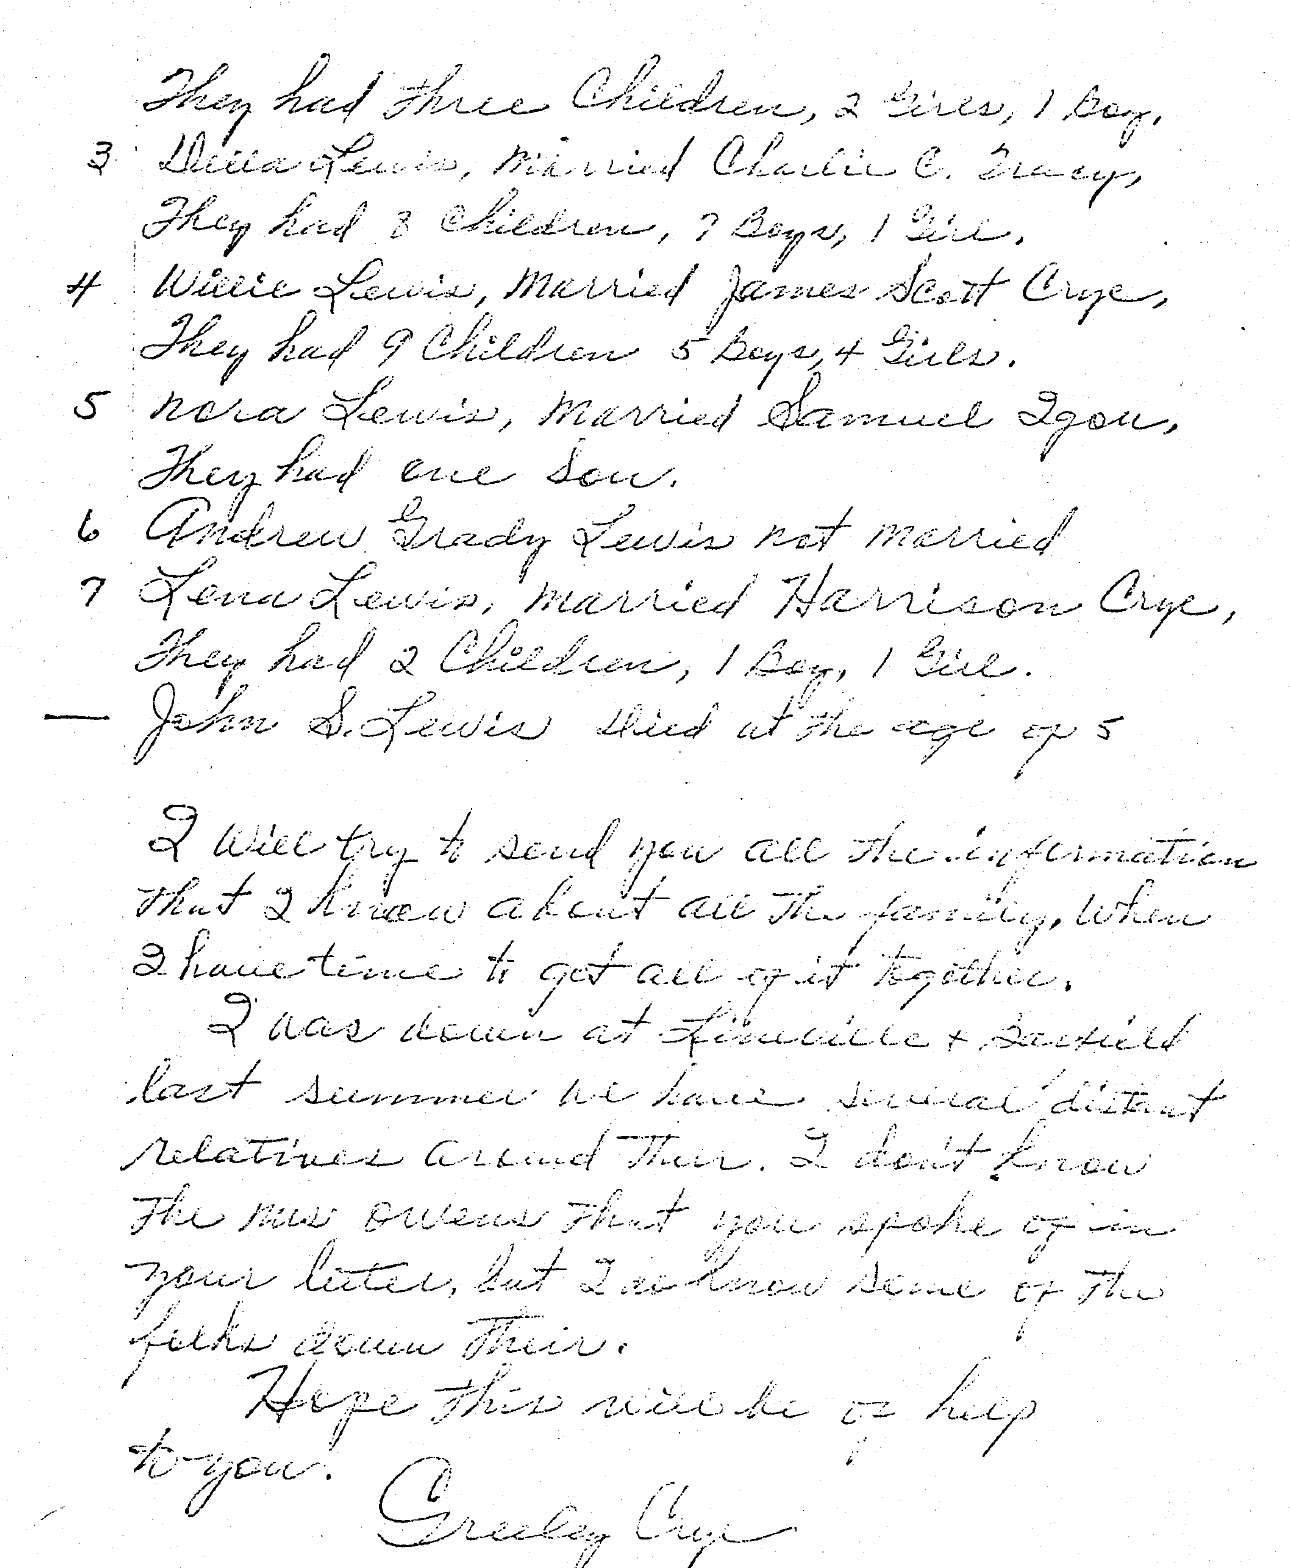 They had three Children, 2 Girls, 1 Boy.
3 Della Lewis, Married Charlie C. Tracy,
They had 8 Children, 7 Boys, 1 Girl.
4 Willie Lewis, Married James Scott Crye,
They had 9 Children 5 Boys, 4 Girls.
5 Nora Lewis, Married Samuel Igou,
They had one Son.
6 Andrew Grady Lewis not married
7 Lena Lewis, Married Harrison Crye,
They had 2 Children, 1 Boy, 1 Girl.
— John S. Lewis Died at the age of 5
I will try to send you all the information
that I know about all the family, when
I have time to get all of it together.
I was down at Lineville +
last summer we have several distant
relatives around their. I don't know
the Mrs Owens that you spoke of in
your letter, but I do know some of the
folks down their.
Hope this will be of help
to you.
Greeley Crye